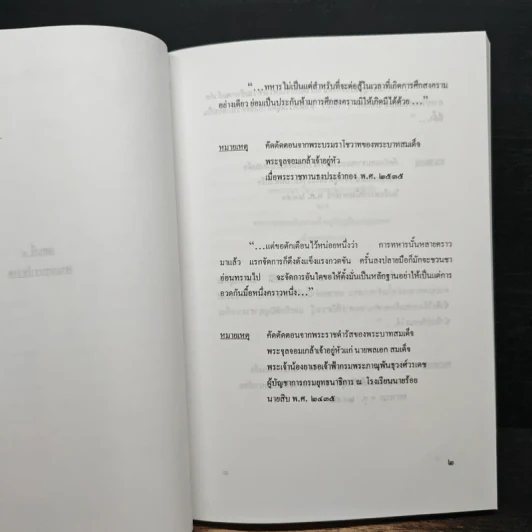 “...ทหารไม่เป็นแต่สำหรับที่จะต่อสู้ในเวลาที่เกิดการศึกสงคราม
อย่างเดียว ย่อมเป็นประกันห้ามการศึกสงครามมิให้เกิดมีได้ด้วย ...”
หมายเหตุ คัดตัดตอนจากพระบรมราโชวาทของพระบาทสมเด็จ
พระจุลจอมเกล้าเจ้าอยู่หัว
เมื่อพระราชทานธงประจำกอง พ.ศ. ๒๔๓๕
“...แต่ขอตักเตือนไว้หน่อยหนึ่งว่า การทหารนั้นหลายคราว
มาแล้ว แรกจัดการก็ตึงตังแข็งแรงกวดขัน ครั้นลงปลายมือก็มักจะชวนชา
อ่อนทรามไป จะจัดการอันใดขอให้ตั้งมั่นเป็นหลักฐานอย่าให้เป็นแต่การ
อวดกันมื้อหนึ่งคราวหนึ่ง...”
หมายเหตุ คัดตัดตอนจากพระราชดำรัสของพระบาทสมเด็จ
พระจุลจอมเกล้าเจ้าอยู่หัวแก่ นายพลเอก สมเด็จ
พระเจ้าน้องยาเธอเจ้าฟ้ากรมพระภาณุพันธุวงศ์วรเดช
ผู้บัญชาการกรมยุทธนาธิการ ณ โรงเรียนนายร้อย
นายสิบ พ.ศ. ๒๔๓๕
๒